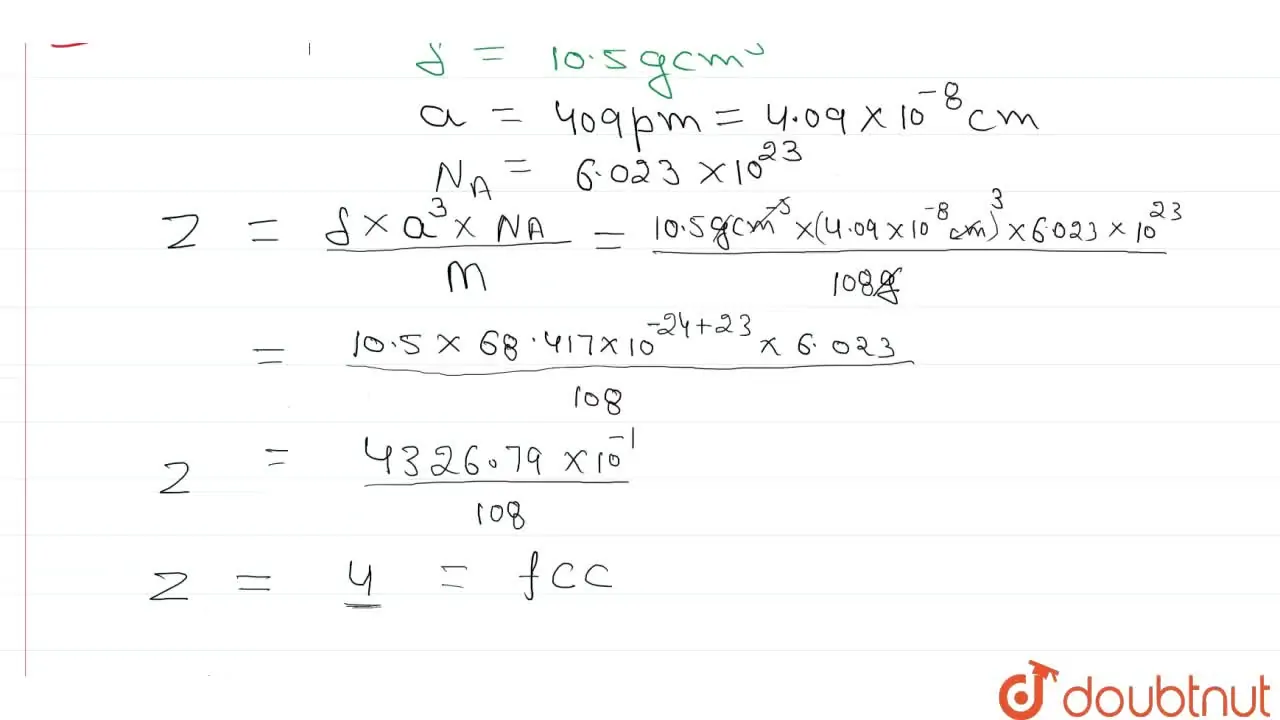 f = 10.5gcm³
a = 409pm = 4.09 × 10⁻⁸ cm
N_A = 6.023 × 10²³
Z = f × a³ × NA / M = 10.5gcm⁻³ × (4.09 × 10⁻⁸ cm)³ × 6.023 × 10²³ / 108g
= 10.5 × 68.417 × 10⁻²⁴⁺²³ × 6.023 / 108
Z = 4326.79 × 10⁻¹ / 108
Z = 4 = fcc
doubtnut